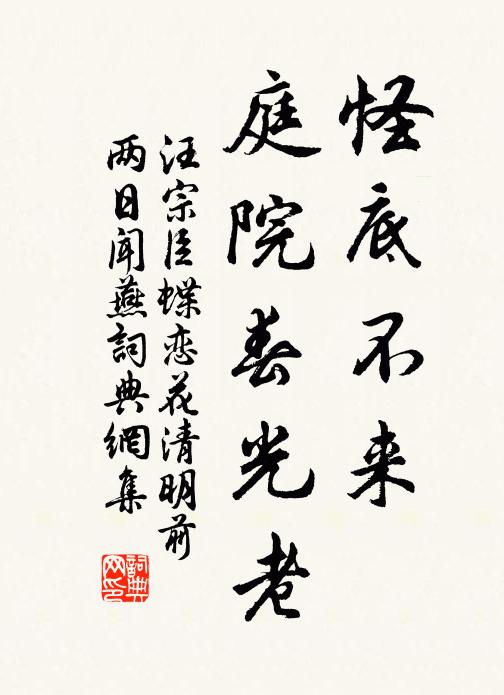 怪底不来
庭院春光老
汪宗臣蝶恋花清明前
两日闻燕詞典網集
詞典网印